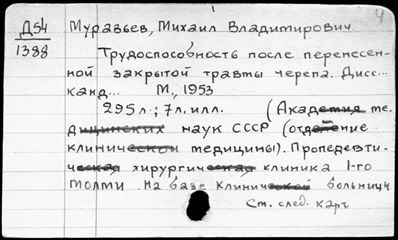 Д54
1388
Муравьев, Михаил Владимирович
Трудоспособность после перенесен-
ной закрытой травмы черепа. Дисс...
канд... М., 1953
295 л.; 7 л. илл. (Академия ме-
дицинских наук СССР (отделение
клинической медицины). Пропедевти-
ческая хирургическая клиника 1-го
МОЛМИ на базе клинической больницы
См. след. карт.